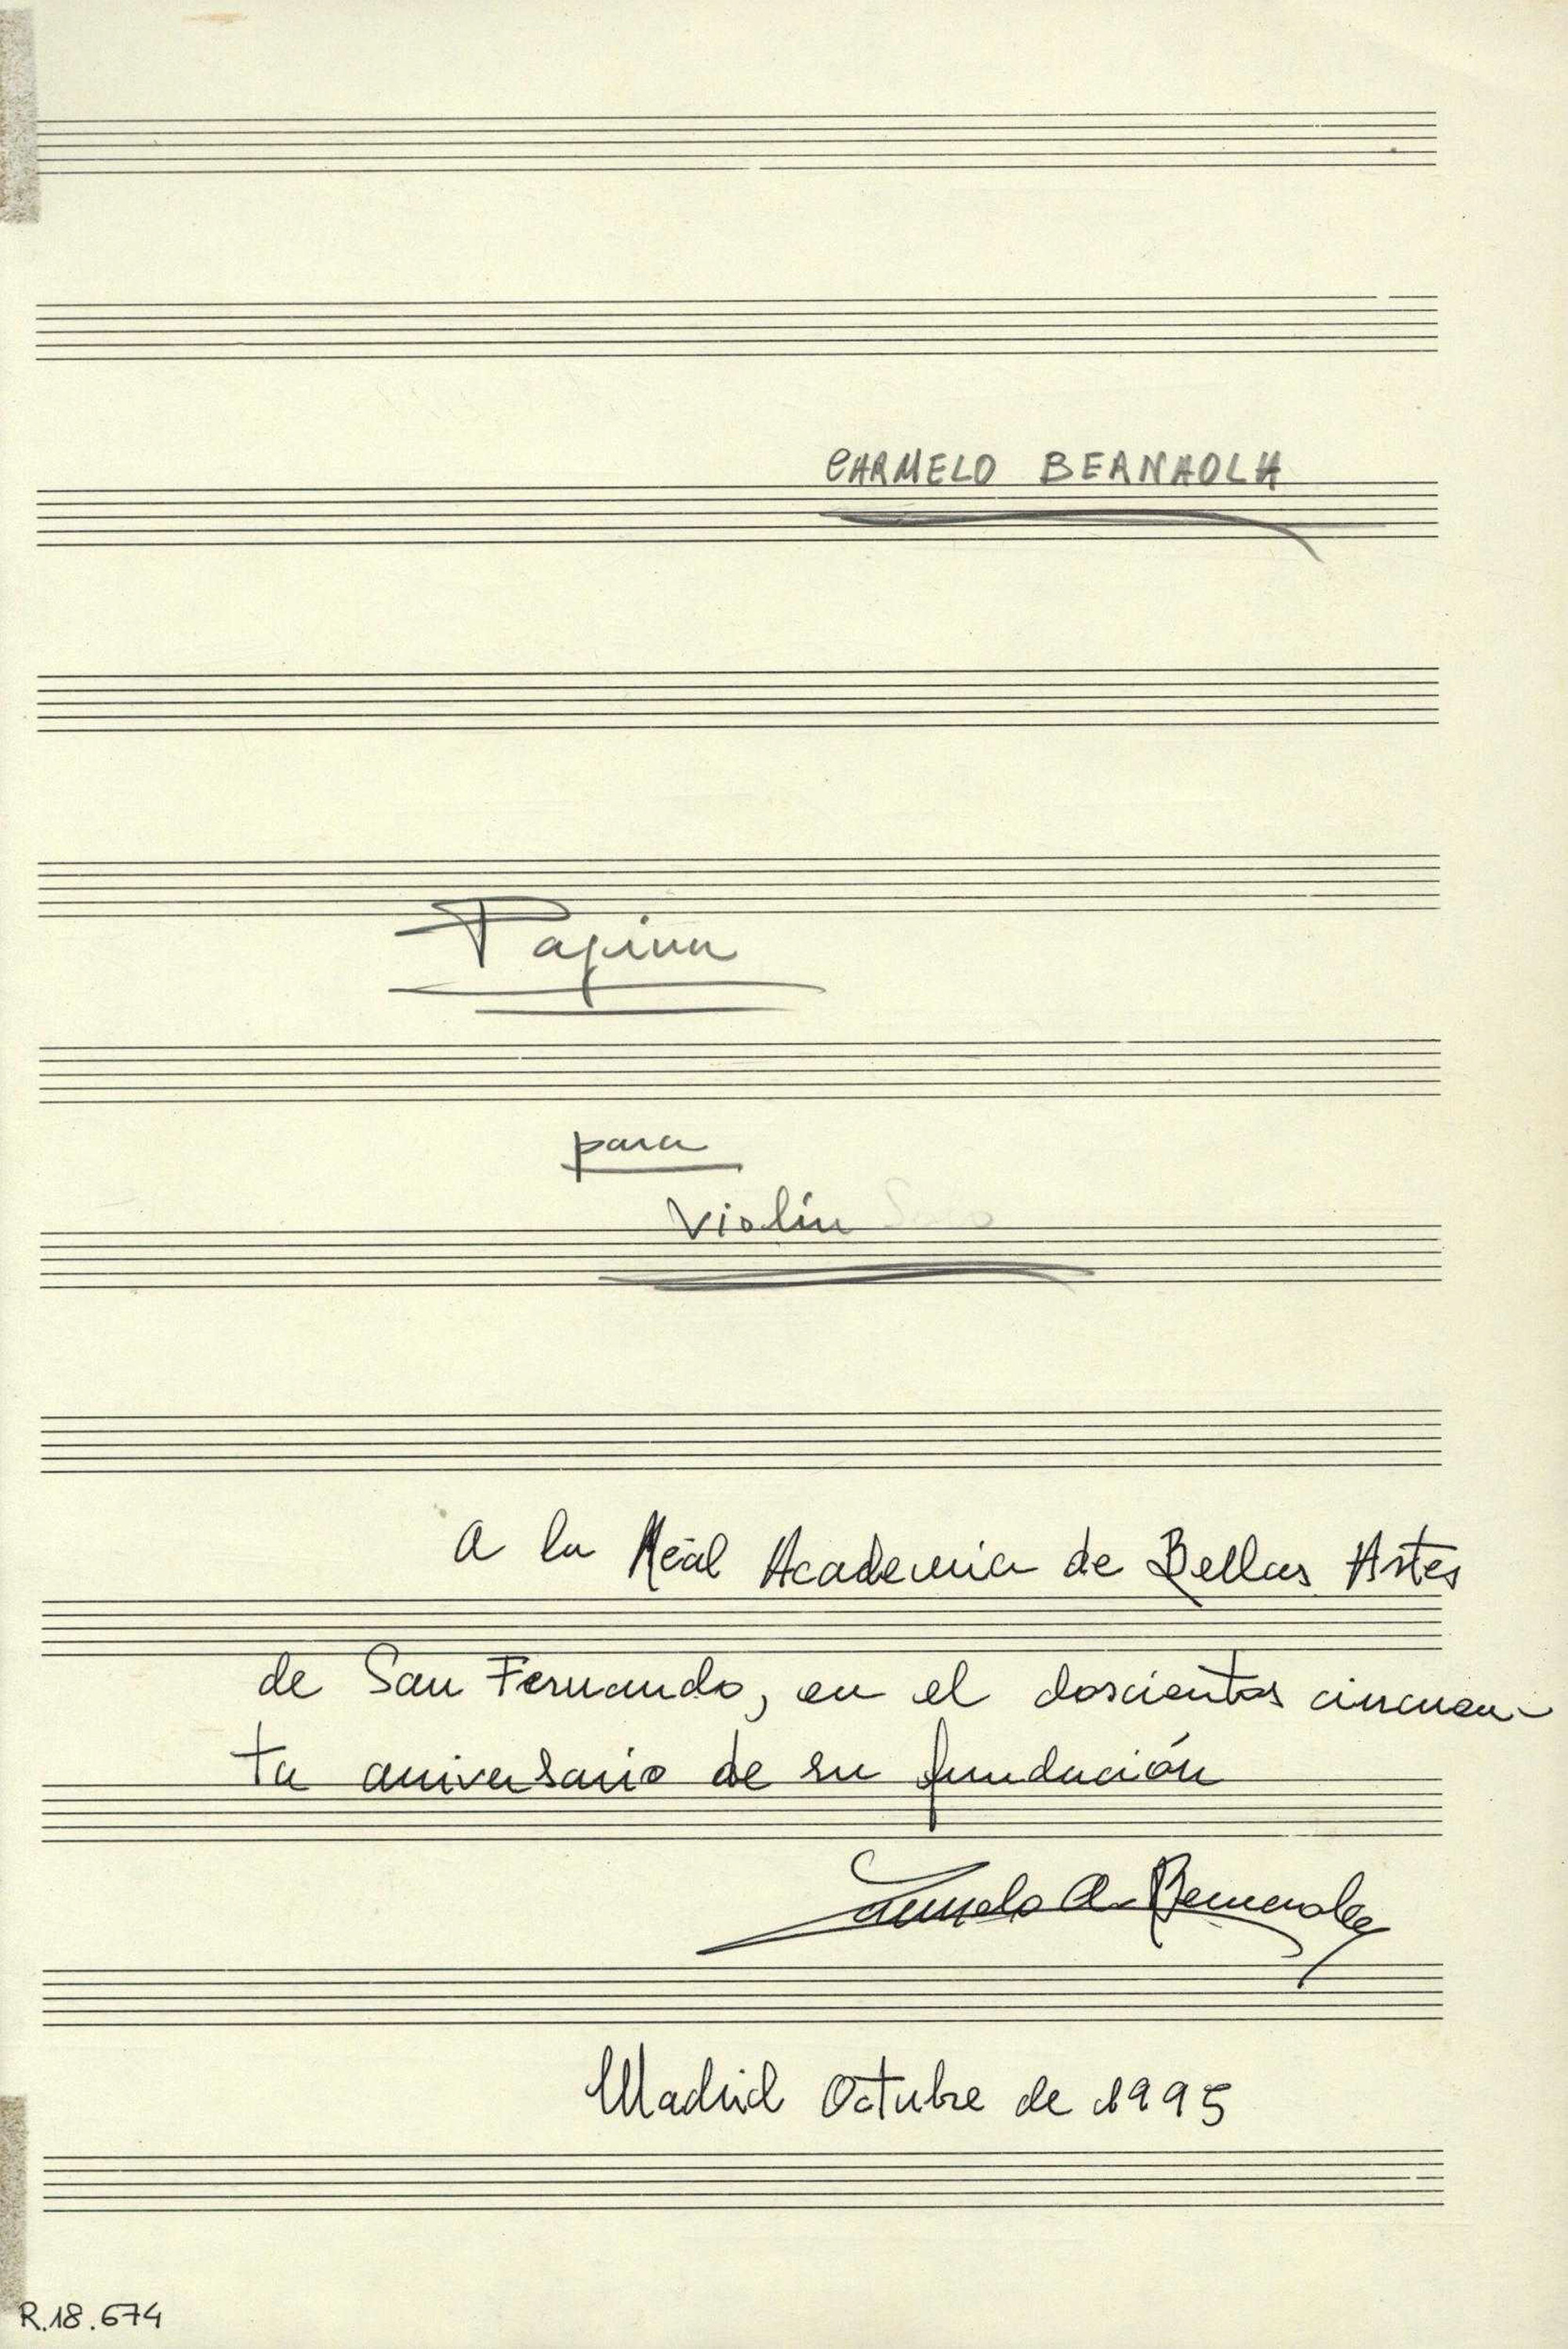 CARMELO BERNAOLA
Pagina
para
Violín Solo
a la Real Academia de Bellas Artes
de San Fernando, en el doscientos cincuen-
ta aniversario de su fundación
Carmelo A. Bernaola
Madrid Octubre de 1995
R.18.674